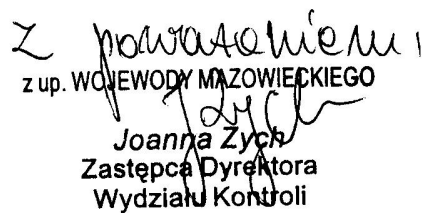 Z poważaniem,
z up. WOJEWODY MAZOWIECKIEGO
Joanna Zych
Zastępca Dyrektora
Wydziału Kontroli